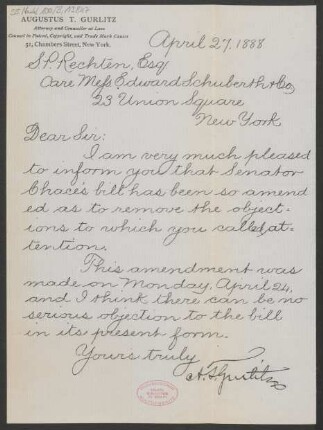 AUGUSTUS T. GURLITZ
Attorney and Counsellor at Law
Counsel in Patent, Copyright, and Trade Mark Causes
51, Chambers Street, New York.
April 27, 1888
S.P. Rechten, Esq
Care Messrs Edward Schuberth & Co,
23 Union Square
New York
Dear Sir:
I am very much pleased
to inform you that Senator
Chace's bill has been so amend
ed as to remove the object-
ions to which you called at-
tention.
This amendment was
made on Monday, April 24,
and I think there can be no
serious objection to the bill
in its present form.
Yours truly
A.T. Gurlitz